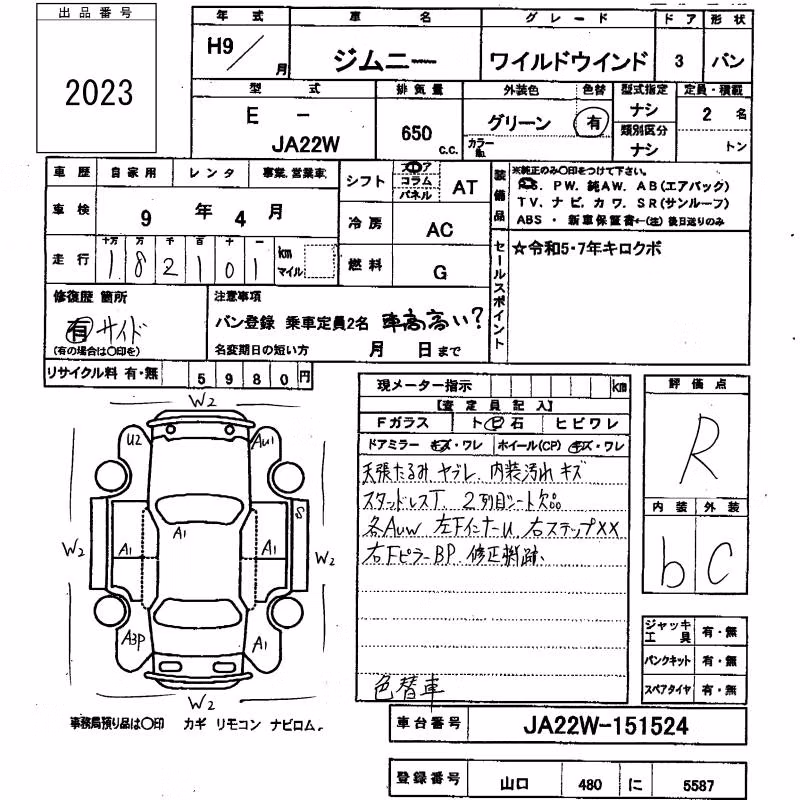 出品番号
2023
年式 車名 グレード ドア 形状
H9/月 ジムニー ワイルドウインド 3 バン
型式 排気量 外装色 色替 型式指定 定員・積載
E - JA22W 650 c.c. グリーン 有 ナシ 2名
カラーNo. 類別区分 ナシ トン
車歴 自家用 レンタ 事業、営業車
車検 9年4月
走行 十万 万 千 百 十 一
182101 km マイル
シフト フロア コラム パネル AT
冷房 AC
燃料 G
装備品 ※純正のみ○印をつけて下さい。
P.S. PW. 純AW. AB(エアバック)
TV. ナビ. カワ. SR(サンルーフ)
ABS ・ 新車保証書←(注)後日送りのみ
セールスポイント
☆令和5・7年キロクボ
修復歴 箇所
有 サイド
(有の場合は○印を)
注意事項
バン登録 乗車定員2名 車高高い?
名変期日の短い方 月 日まで
リサイクル料 有・無 5980円
現メーター指示 km
【査定員記入】
Fガラス ト ビ 石 ヒビワレ
ドアミラー キズ・ワレ ホイール(CP) キズ・ワレ
天張たるみ ヤブレ、内装汚れ キズ
スタッドレスT、2列目シート欠品
各AUW 左FインナーU、右ステップXX
右FピラーBP 修正跡、
色替車
評価点
R
内装 外装
b C
ジャッキ工具 有・無
パンクキット 有・無
スペアタイヤ 有・無
W2
U2 AU1
S
W2 A1 A1 A1 W2
A3P A1
W2
事務局預り品は○印 カギ リモコン ナビロム.
車台番号 JA22W-151524
登録番号 山口 480 に 5587